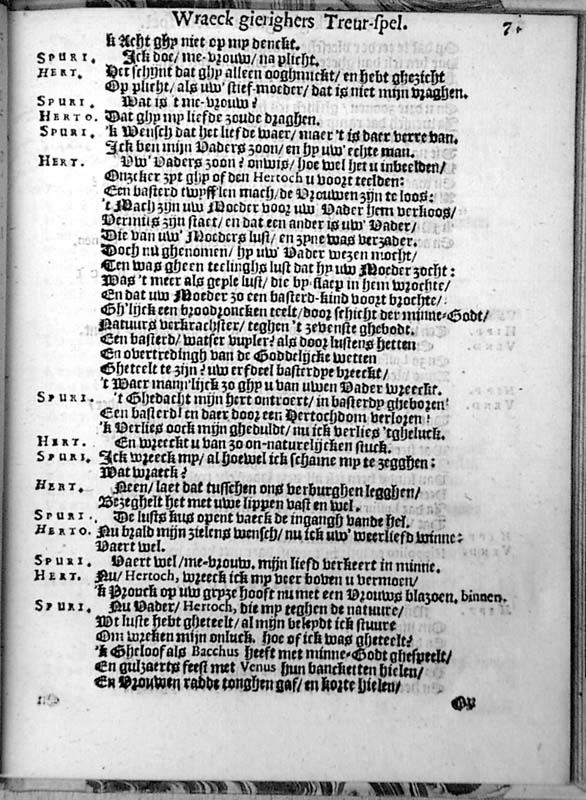 Wraeck gierighers Treur-spel. 7.
k Acht ghy niet op my denckt.
SPURI. Ick doe/ me-vrouw/ na plicht.
HERT. Het schijnt dat ghy alleen ooghmickt/ en hebt ghezicht
Op plicht/ als uw' stief-moeder/ dat is niet mijn vraghen.
SPURI. Wat is 't me-vrouw?
HERTO. Dat ghy my liefde zoude draghen.
SPURI. 'k Wensch dat het liefde waer/ maer 't is daer verre van.
Ick ben mijn Vaders zoon/ en hy uw' echte man.
HERT. Uw' Vaders zoon? onwis/ hoe wel het u inbeelden/
Onzeker zyt ghy of den Hertoch u voort teelden:
Een basterd twyff'len mach/ de Vrouwen zijn te loos:
't Mach zijn uw Moeder voor uw Vader hem verkoos/
Vermits zijn staet/ en dat een ander is uw' Vader/
Die van uw' Moeders lust/ en zyne was verzader.
Doch nu ghenomen/ hy uw' Vader wezen mocht/
Ten was gheen teelinghs lust dat hy uw Moeder zocht:
Was 't meer als geyle lust/ die by-slaep in hem wrochte/
En dat uw Moeder zo een basterd-kind voort brochte/
Gh'lijck een broodroncken teelt/ door schicht der minne-Godt/
Natuurs verkrachster/ teghen 't zevenste ghebodt.
Een basterd/ wat ser vuyler? als door lustens hetten
En overtredingh van de Goddelijcke wetten
Gheteelt te zijn? uw erfdeel basterdye breeckt/
't Waer mann'lijck zo ghy u van uwen Vader wreeckt.
SPURI. 't Ghedacht mijn hert ontroert/ in basterdy gheboren!
Een basterd! en daer door een Hertochdom verloren!
'k Verlies oock mijn gheduldt/ nu ick verlies 'tgheluck.
HERT. En wreeckt u van zo on-naturelijcken stuck.
SPURI. Ick wreeck my/ al hoewel ick schame my te zegghen:
Wat wraeck?
HERT. Neen/ laet dat tusschen ons verburghen legghen/
Bezeghelt het met uwe lippen vast en wel.
SPURI. De lusts kus opent vaeck de ingangh vande hel.
HERTO. Nu brald mijn zielens wensch/ nu ick uw' weerliefd winne:
Vaert wel.
SPURI. Vaert wel/ me-vrouw, mijn liefd verkeert in minne.
HERT. Nu/ Hertoch, wreeck ick my veer boven u vermoen/
'k Pronck op uw gryze hooft nu met een Vrouws blazoen. binnen.
SPURI. Nu Vader/ Hertoch, die my teghen de natuure/
Wt luste hebt gheteelt/ al mijn beleydt ick stuure
Om wreken mijn onluck. hoe of ick was gheteelt?
'k Gheloof als Bacchus heeft met minne-Godt ghespeelt/
En gulzaerts feest met Venus hun bancketten hielen/
En Vrouwen radde tonghen gaf/ en korte hielen/
Op